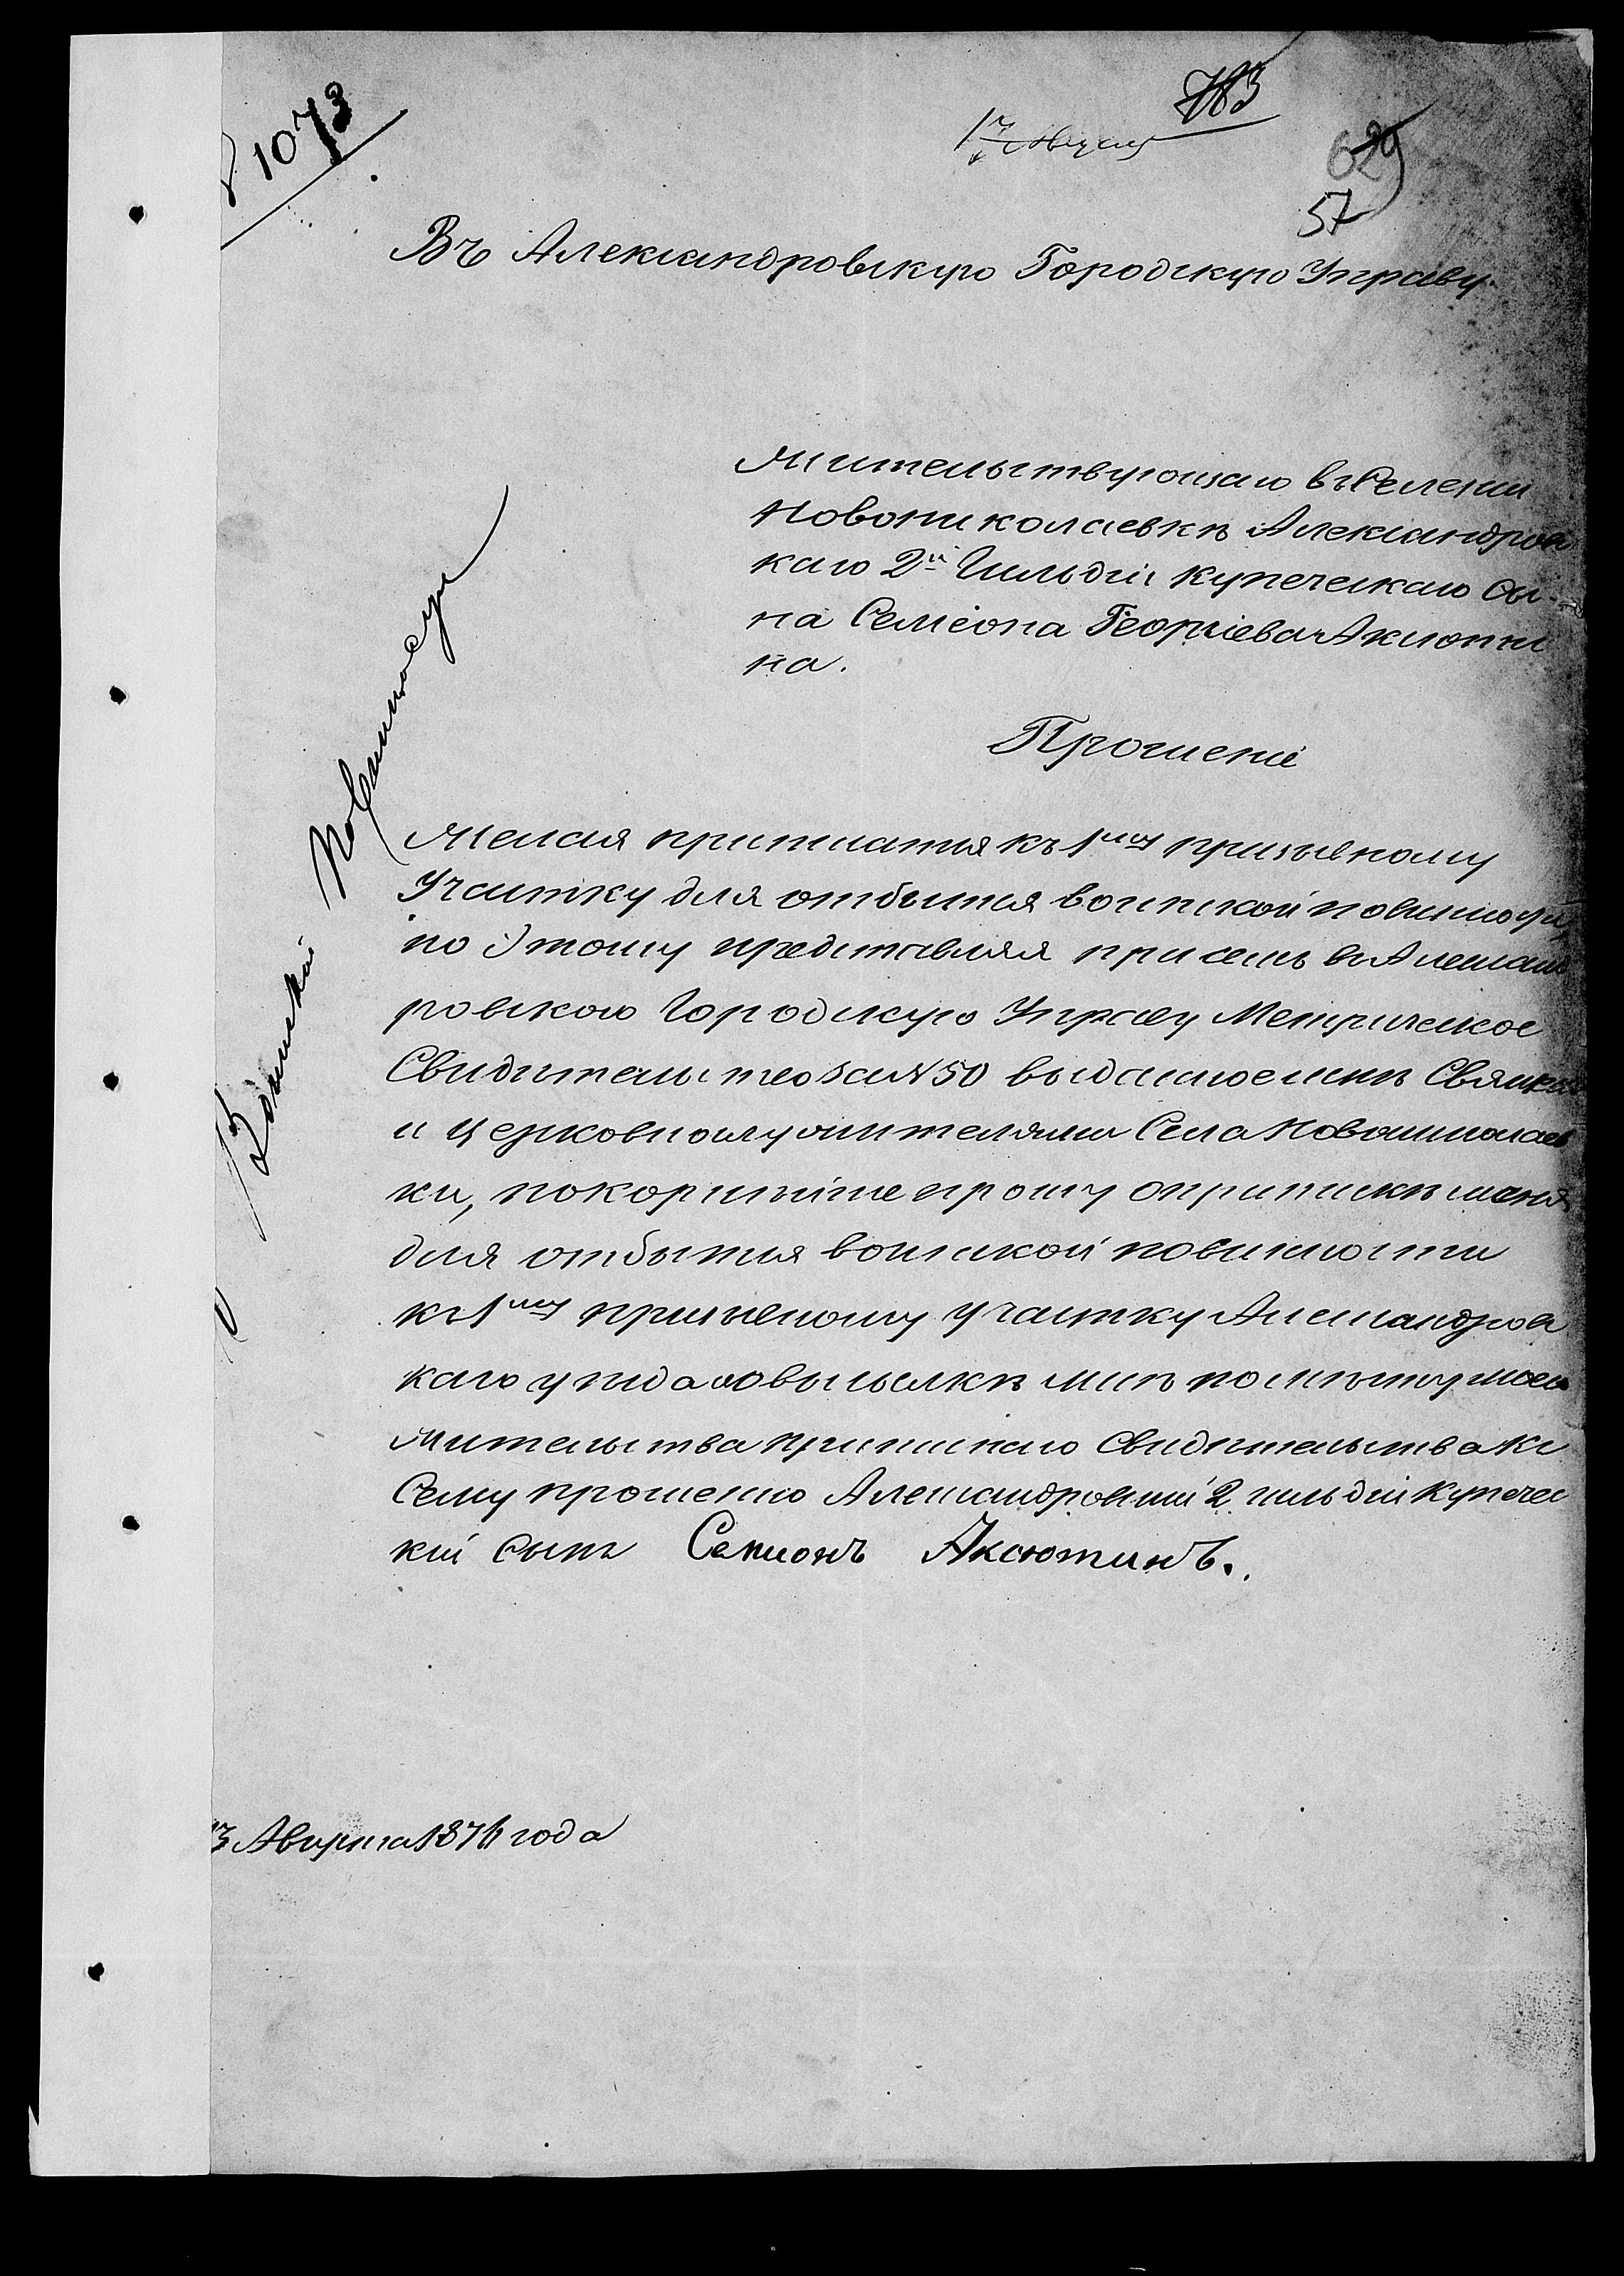 1073
783
17 Августа
629
57
Въ Александровскую Городскую Управу.
Жительствующаго въ Селении
Новониколаевкѣ Александров
каго 2й Гильдіи купеческаго Сы-
на Семіона Георгіева Аксюти
на.
Прошеніе
Желая приписатся къ 1му призывному
Участку для отбытія воинской повиности,
по этому представляя при семъ въ Александ
ровскою Городскую Управу Метрическое
Свидѣтельство за № 50 выданное мнѣ Священ
и церковнослужителями Села Новониколаев
ки, покорнѣйше прошу о припискѣ меня
для отбытия воинской повинности
къ 1му призывному участку Александров
каго уѣзда и о высылкѣ мнѣ по мѣсту моего
жительства приписнаго Свидѣтельства къ
Сему прошенію Александровский 2 гильдіи Купечес
кій Сынъ Семионъ Аксютинъ.
3 Августа 1874 года
О Воинской Повинности